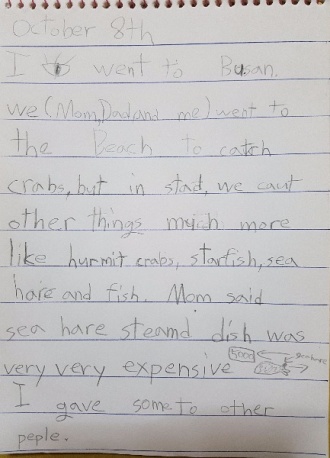 October 8th
I went to Busan.
we (Mom, Dad and me) went to
the Beach to catch
crabs, but in stad, we caut
other things much more
like hurmit crabs, starfish, sea
haire and fish. Mom said
sea hare steamd dish was
very very expensive
I gave some to other
peple.